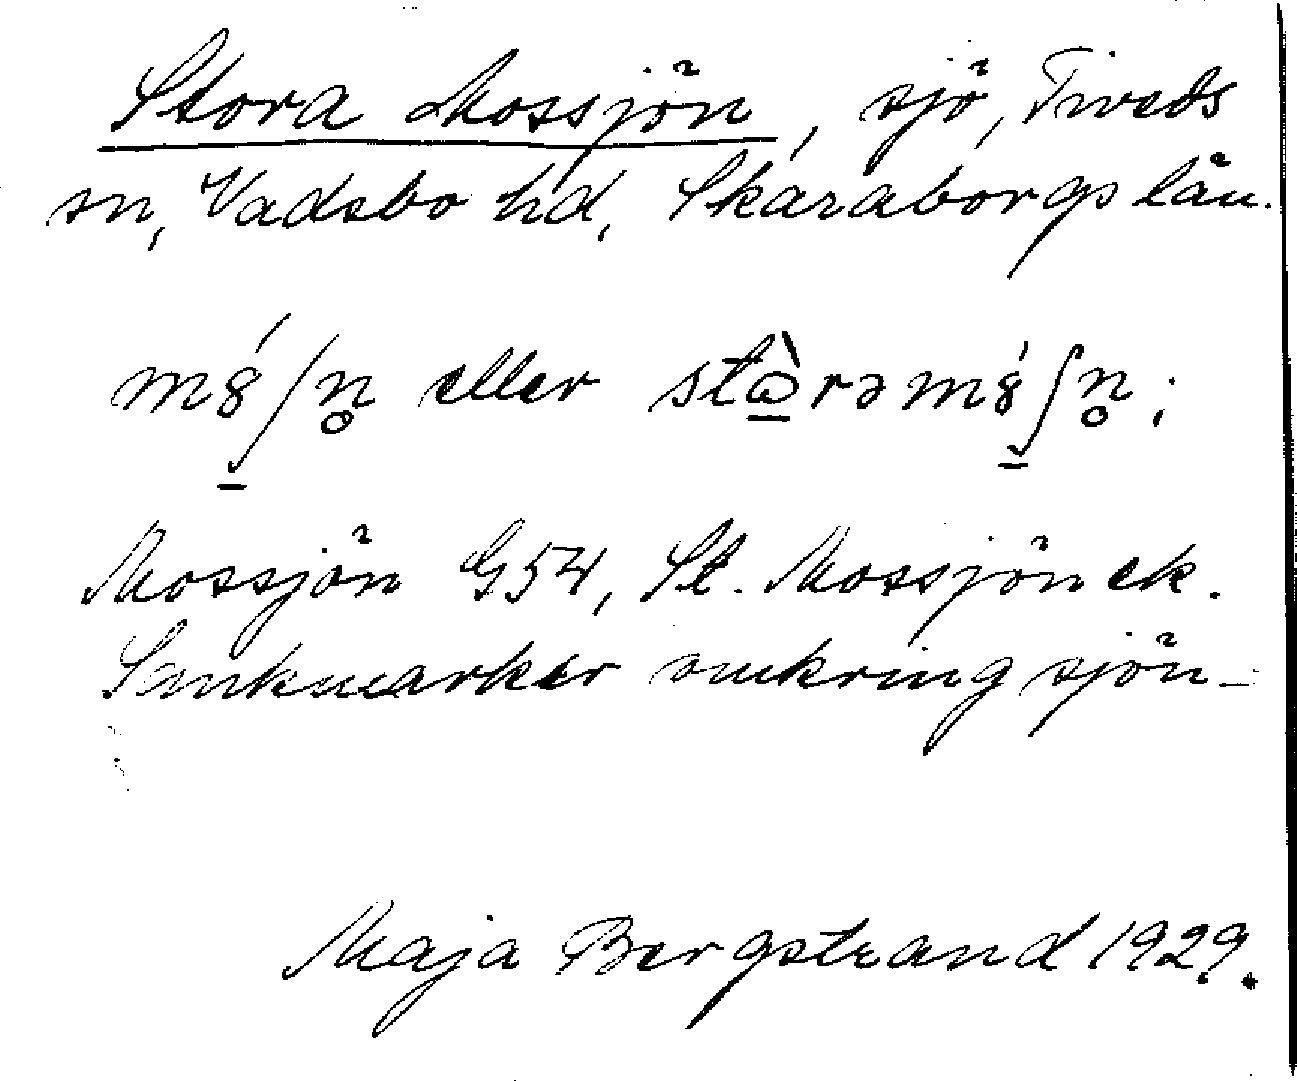 Stora Mossjön, sjö, Tiveds
sn, Vadsbo hd, Skaraborgs län.
eller
Mossjön G54, St. Mossjön ek.
Sankmarker omkring sjön.
Maja Bergstrand 1929.